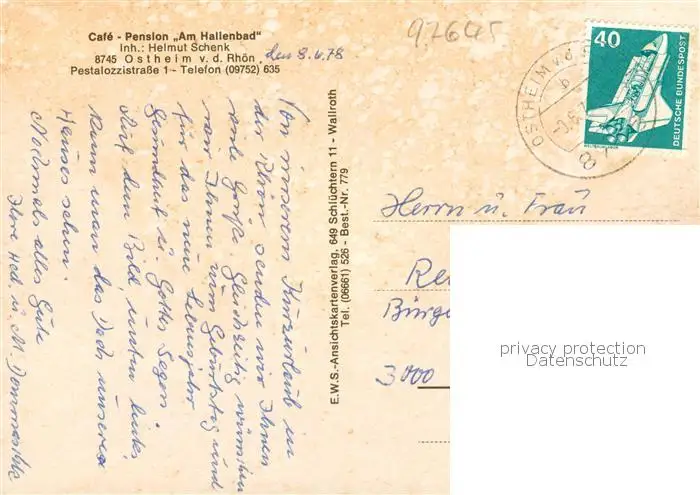 Café - Pension „Am Hallenbad"
Inh.: Helmut Schenk
8745 Ostheim v. d. Rhön
Pestalozzistraße 1 - Telefon (09752) 635
den 8.6.78
97645
40
DEUTSCHE BUNDESPOST
WELTRAUMLABOR
OSTHEIM v. d.
Von unserem Kurzurlaub in
der Rhön senden wir Ihnen
viele Grüße. Gleichzeitig wünschen
wir Ihnen zum Geburtstag und
für das neue Lebensjahr
Gesundheit u. Gottes Segen.
Auf dem Bild, unten links,
kann man das Dach unseres
Hauses sehn.
Nochmals alles Gute
Ihre Hed. u. M.
E.W.S.-Ansichtskartenverlag, 649 Schlüchtern 11 - Wallroth
Tel. (06661) 526 - Best.-Nr. 779
Herrn u. Frau
Re
Bürge
3000
privacy protection
Datenschutz